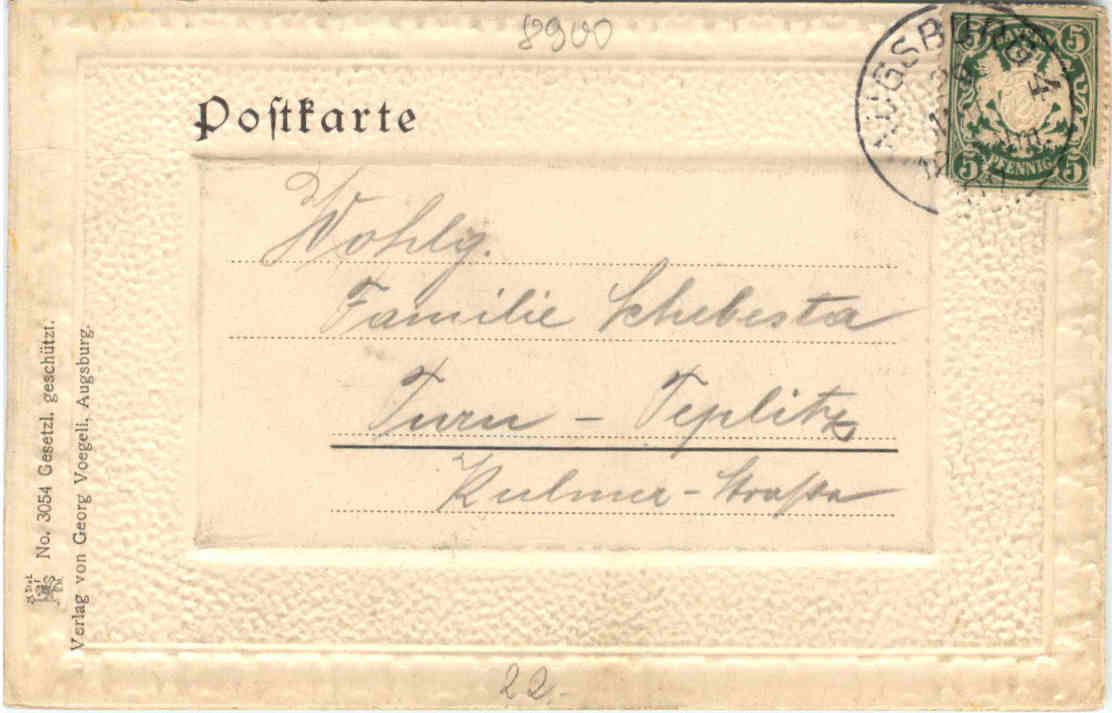 8900
Postkarte
AUGSBURG 4
5 5
PFENNIG
5 5
Wohlg.
Familie Schebesta
Turn - Teplitz
Kulmer-Straße
No. 3054 Gesetzl. geschützt.
Verlag von Georg Voegeli, Augsburg.
22.